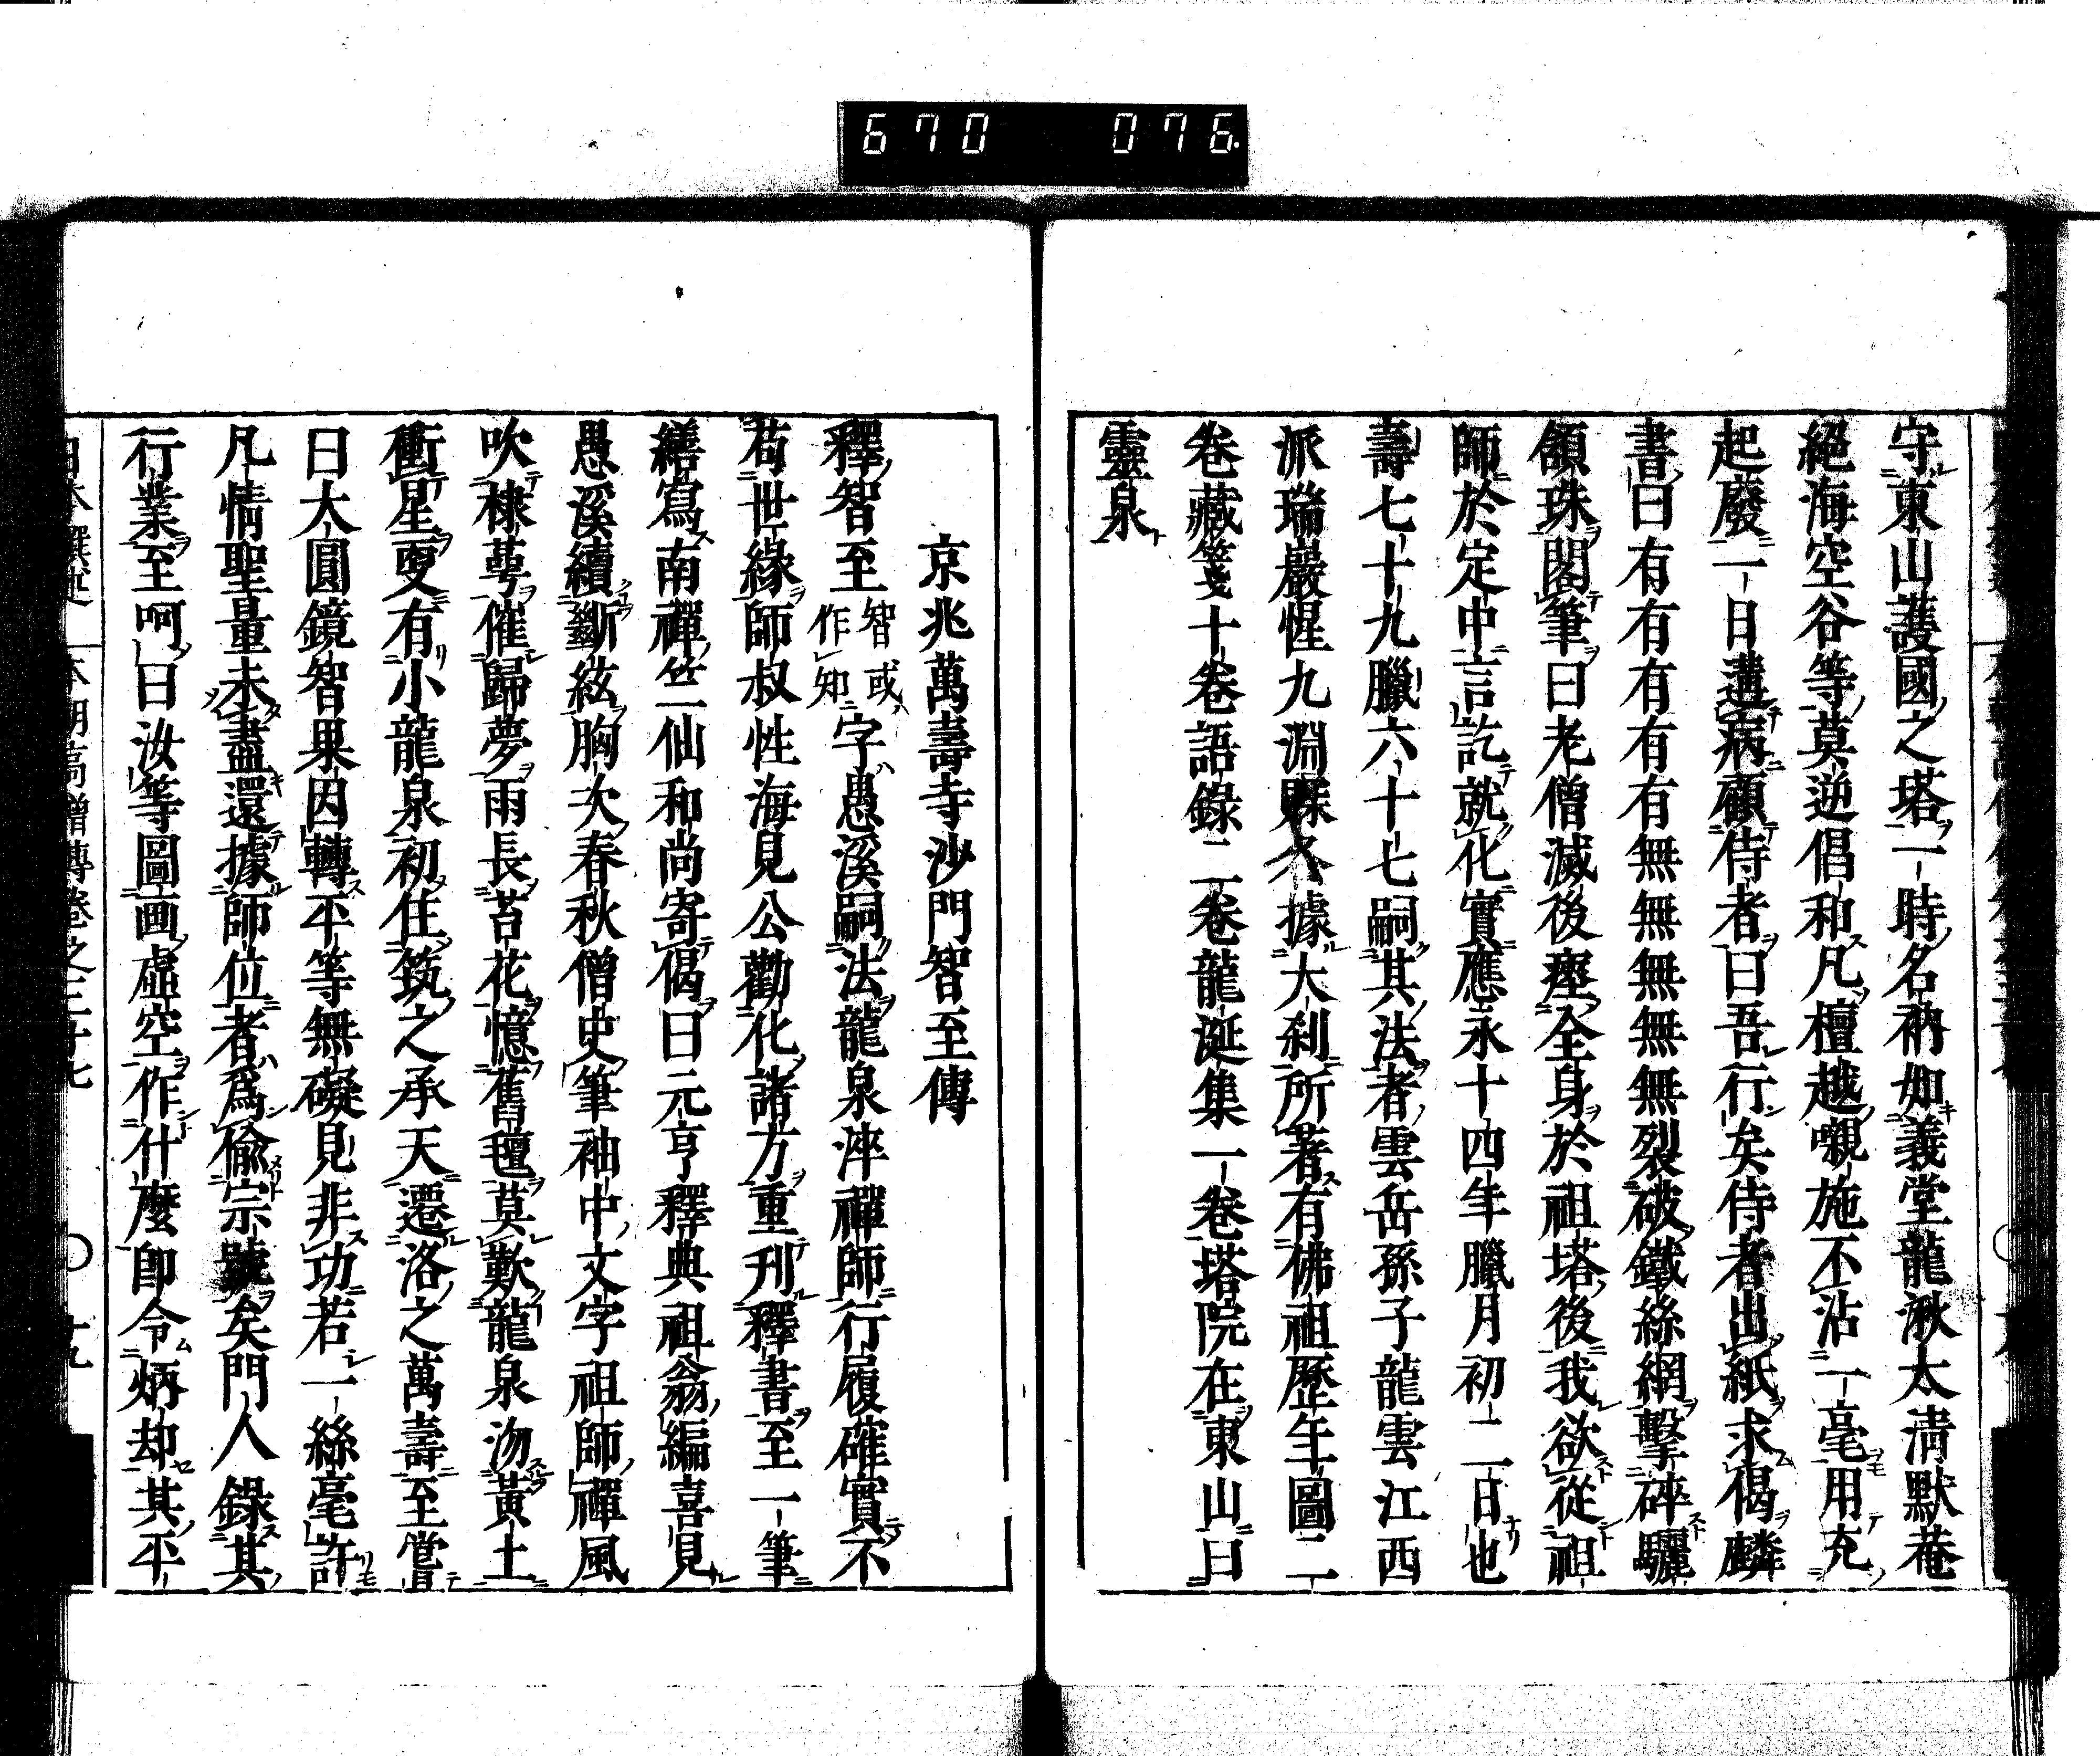 670 076
守東山護國之塔一時名衲如義堂龍湫太清默菴
絕海空谷等莫逆倡和凡檀越嚫施不沾一毫用充
起廢一日遘病顧侍者曰吾行矣侍者出紙求偈麟
書曰有有有有有無無無無無裂破鐵絲網擊碎驪
頷珠閣筆曰老僧滅後瘞全身於祖塔後我欲從祖
師於定中言訖就化實應永十四年臘月初二日也
壽七十九臘六十七嗣其法者雲岳孫子龍雲江西
派瑞巖惺九淵䝉各據大刹所著有佛祖歷年圖二
卷藏箋十卷語錄二卷龍涎集一卷塔院在東山曰
靈泉
京兆萬壽寺沙門智至傳
釋智至智或作知字愚溪嗣法龍泉淬禪師行履確實不
苟世緣師叔性海見公勸化諸方重刊釋書至一筆
繕寫南禪竺仙和尚寄偈曰元亨釋典祖翁編喜見
愚溪續斷絃胸次春秋僧史筆袖中文字祖師禪風
吹棣萼催歸夢雨長苔花憶舊氊莫歎龍泉沕黃土
衝星更有小龍泉初住筑之承天遷洛之萬壽至嘗
曰大圓鏡智果因轉平等無礙見非功若一絲毫許
凡情聖量未盡還據師位者為偷宗號矣門人錄其
行業至呵曰汝等圖画虛空作什麼即令炳却其平
日本撰述 本朝高僧傳卷之三十七 〇 十九